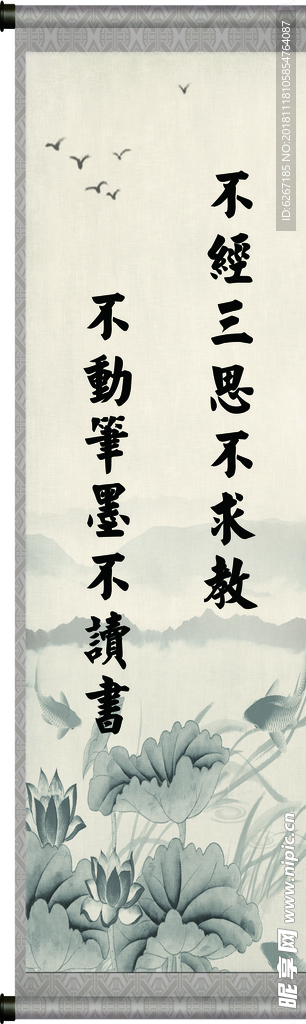 不經三思不求教
不動筆墨不讀書
ID:6267185 NO:20181118105854764087
昵享网 www.nipic.cn